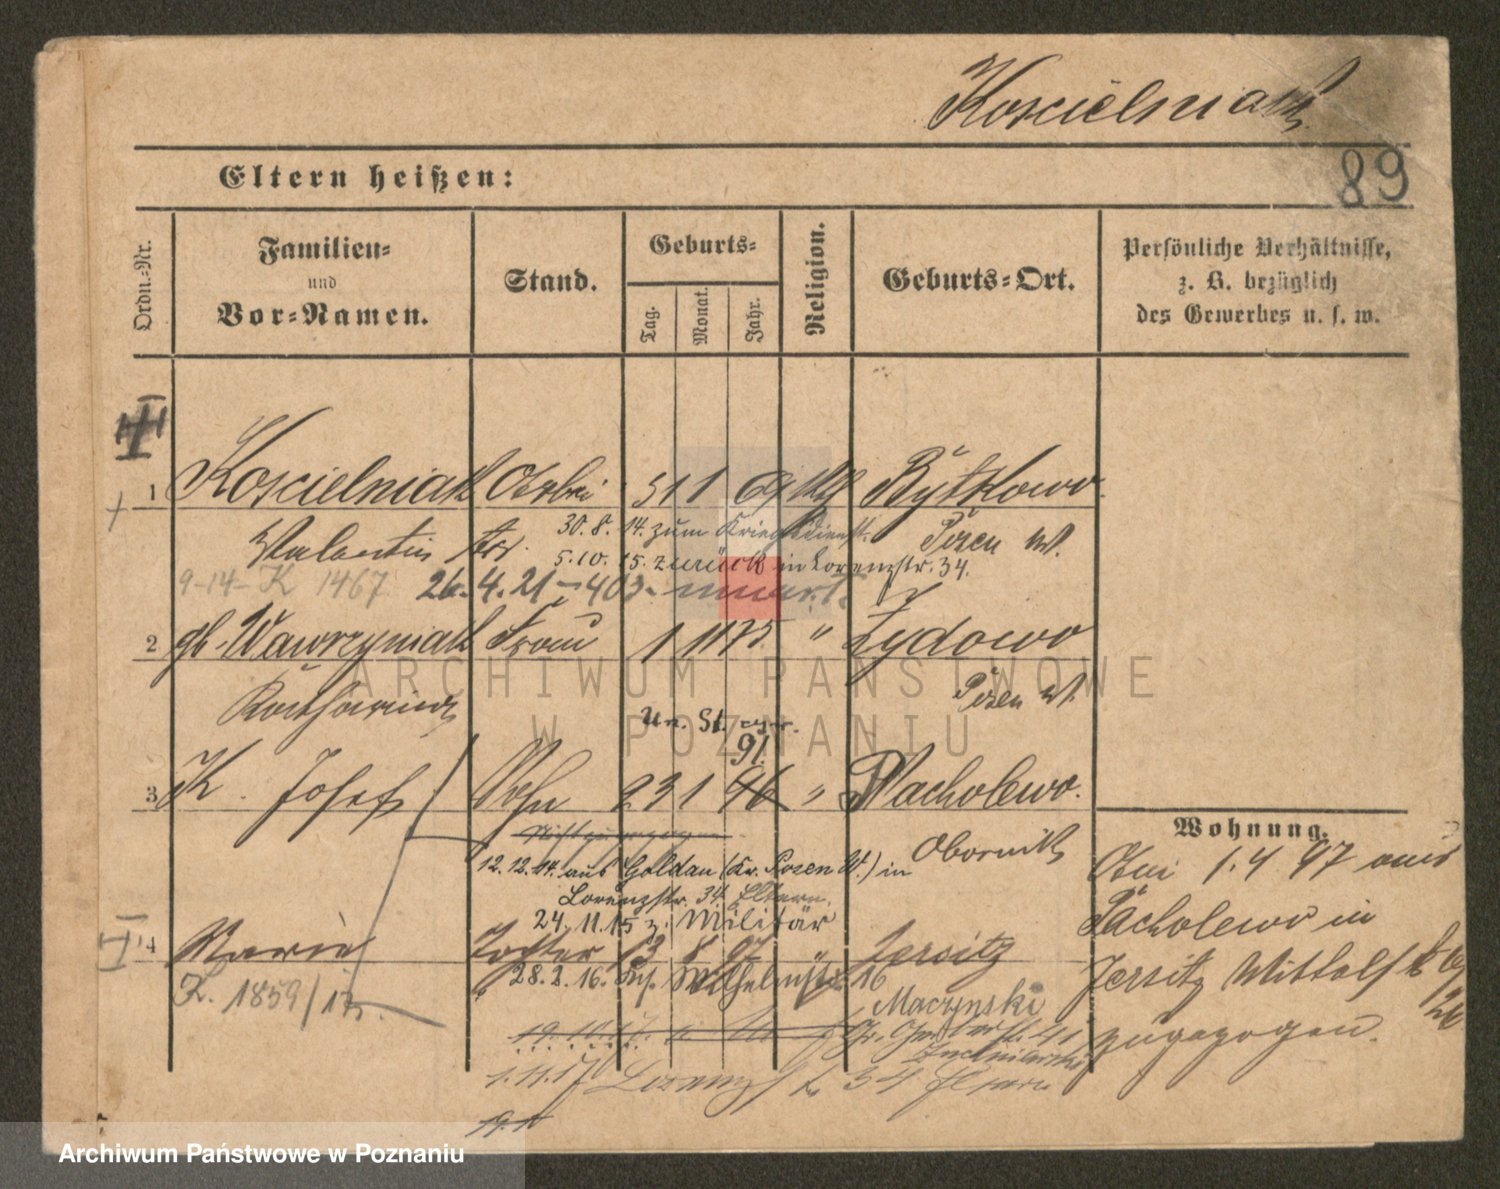 Koscielniak
Eltern heißen:
89
Ordn.-Nr.
Familien-
und
Vor-Namen.
Stand.
Geburts-
Tag.
Monat.
Jahr.
Religion.
Geburts-Ort.
Persönliche Verhältnisse,
z. B. bezüglich
des Gewerbes u. s. w.
1 Koscielniak 69 Bytkowo
Valentin
30.8.14. zum Kriegsdienst. Posen W.
5.10.15. zurück in Lorenzstr. 34.
9-14-K 1467 26.4.21-403-
2 gb. Wawrzyniak Frau 1 11 75 " Zydowo
Katharina Posen W.
91.
3 K. Josef Sohn 23 1 96 " Pacholewo.
Obornik
12.12.14. aus Goldau (Kr. Posen W.) in
Lorenzstr. 34. Eltern.
24.11.15 z. Militär
4 Marie Tochter 13 8 97 " Jersitz
28.2.16. Wilhelmstr. 16
K. 1859/17.
Maczynski
1.11.17 Lorenzstr. 34 Eltern
19.1
Wohnung.
1.4 97 aus
Pacholewo in
Jersitz
zugezogen.
ARCHIWUM PAŃSTWOWE
W POZNANIU
Archiwum Państwowe w Poznaniu